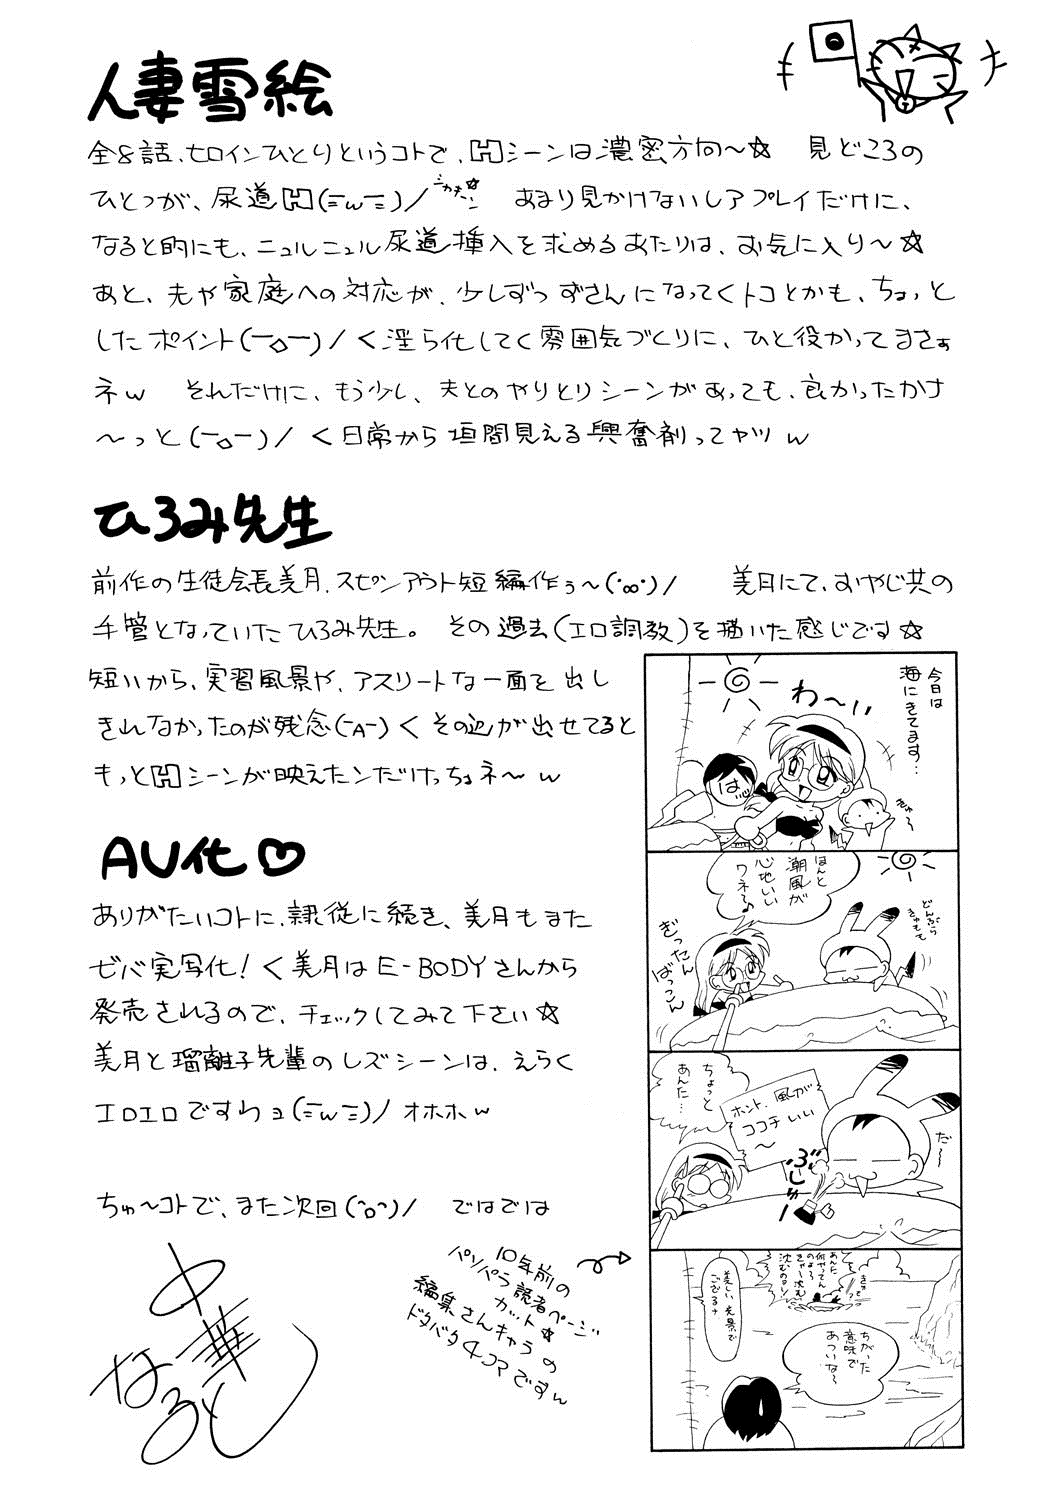 人妻雪絵
全8話、ヒロインひとりというコトで、Hシーンは濃密方向〜☆ 見どころの
ひとつが、尿道H(ΞwΞ)/ あまり見かけないレアプレイだけに、
なると的にも、ニュルニュル尿道挿入を求めるあたりは、お気に入り〜☆
あと、夫や家庭への対応が、少しずつずさんになってくトコとかも、ちょっと
したポイント(¯◇¯)/ く淫ら化してく雰囲気づくりに、ひと役かってまさぁ
ネw それだけに、もう少し、夫とのやりとりシーンがあっても、良かったかな
〜っと(¯◇¯)/ く日常から垣間見える興奮剤ってヤツw
ひろみ先生
前作の生徒会長美月、スピンアウト短編作ぅ〜(・∞・)/ 美月にて、おやじ共の
手管となっていたひろみ先生。その過去(エロ調教)を描いた感じです☆
短いから、実習風景や、アスリートな一面を出し
きれなかったのが残念(¯A¯) くその辺が出せてると
もっとHシーンが映えたンだけっちょネ〜w
AV化♡
ありがたいコトに、隷従に続き、美月もまた
ゼバ実写化! く美月はE-BODYさんから
発売されるので、チェックしてみて下さい☆
美月と瑠璃子先輩のレズシーンは、えらく
エロエロですわョ(ΞwΞ)/ オホホw
ちゅ〜コトで、また次回(^o^)/ ではでは
中華
なると
10年前の
パソパラ読者ページ
カット☆
編集さんキャラの
ドタバタ4コマですw
今日は
海にきてます…
わ〜い
は
きゃ〜
ほんと
潮風が
心地いい
ワネ〜♪
ぎったん
ばっこん
ちょっと
あんた…
ホント、風が
ココチいい
〜
だ〜
ぶしゅー
あんた
何やってん
のよ〜
きゃー沈む
沈むのヨ〜
美しい光景で
ござるな
ちがった
意味で
あついな〜